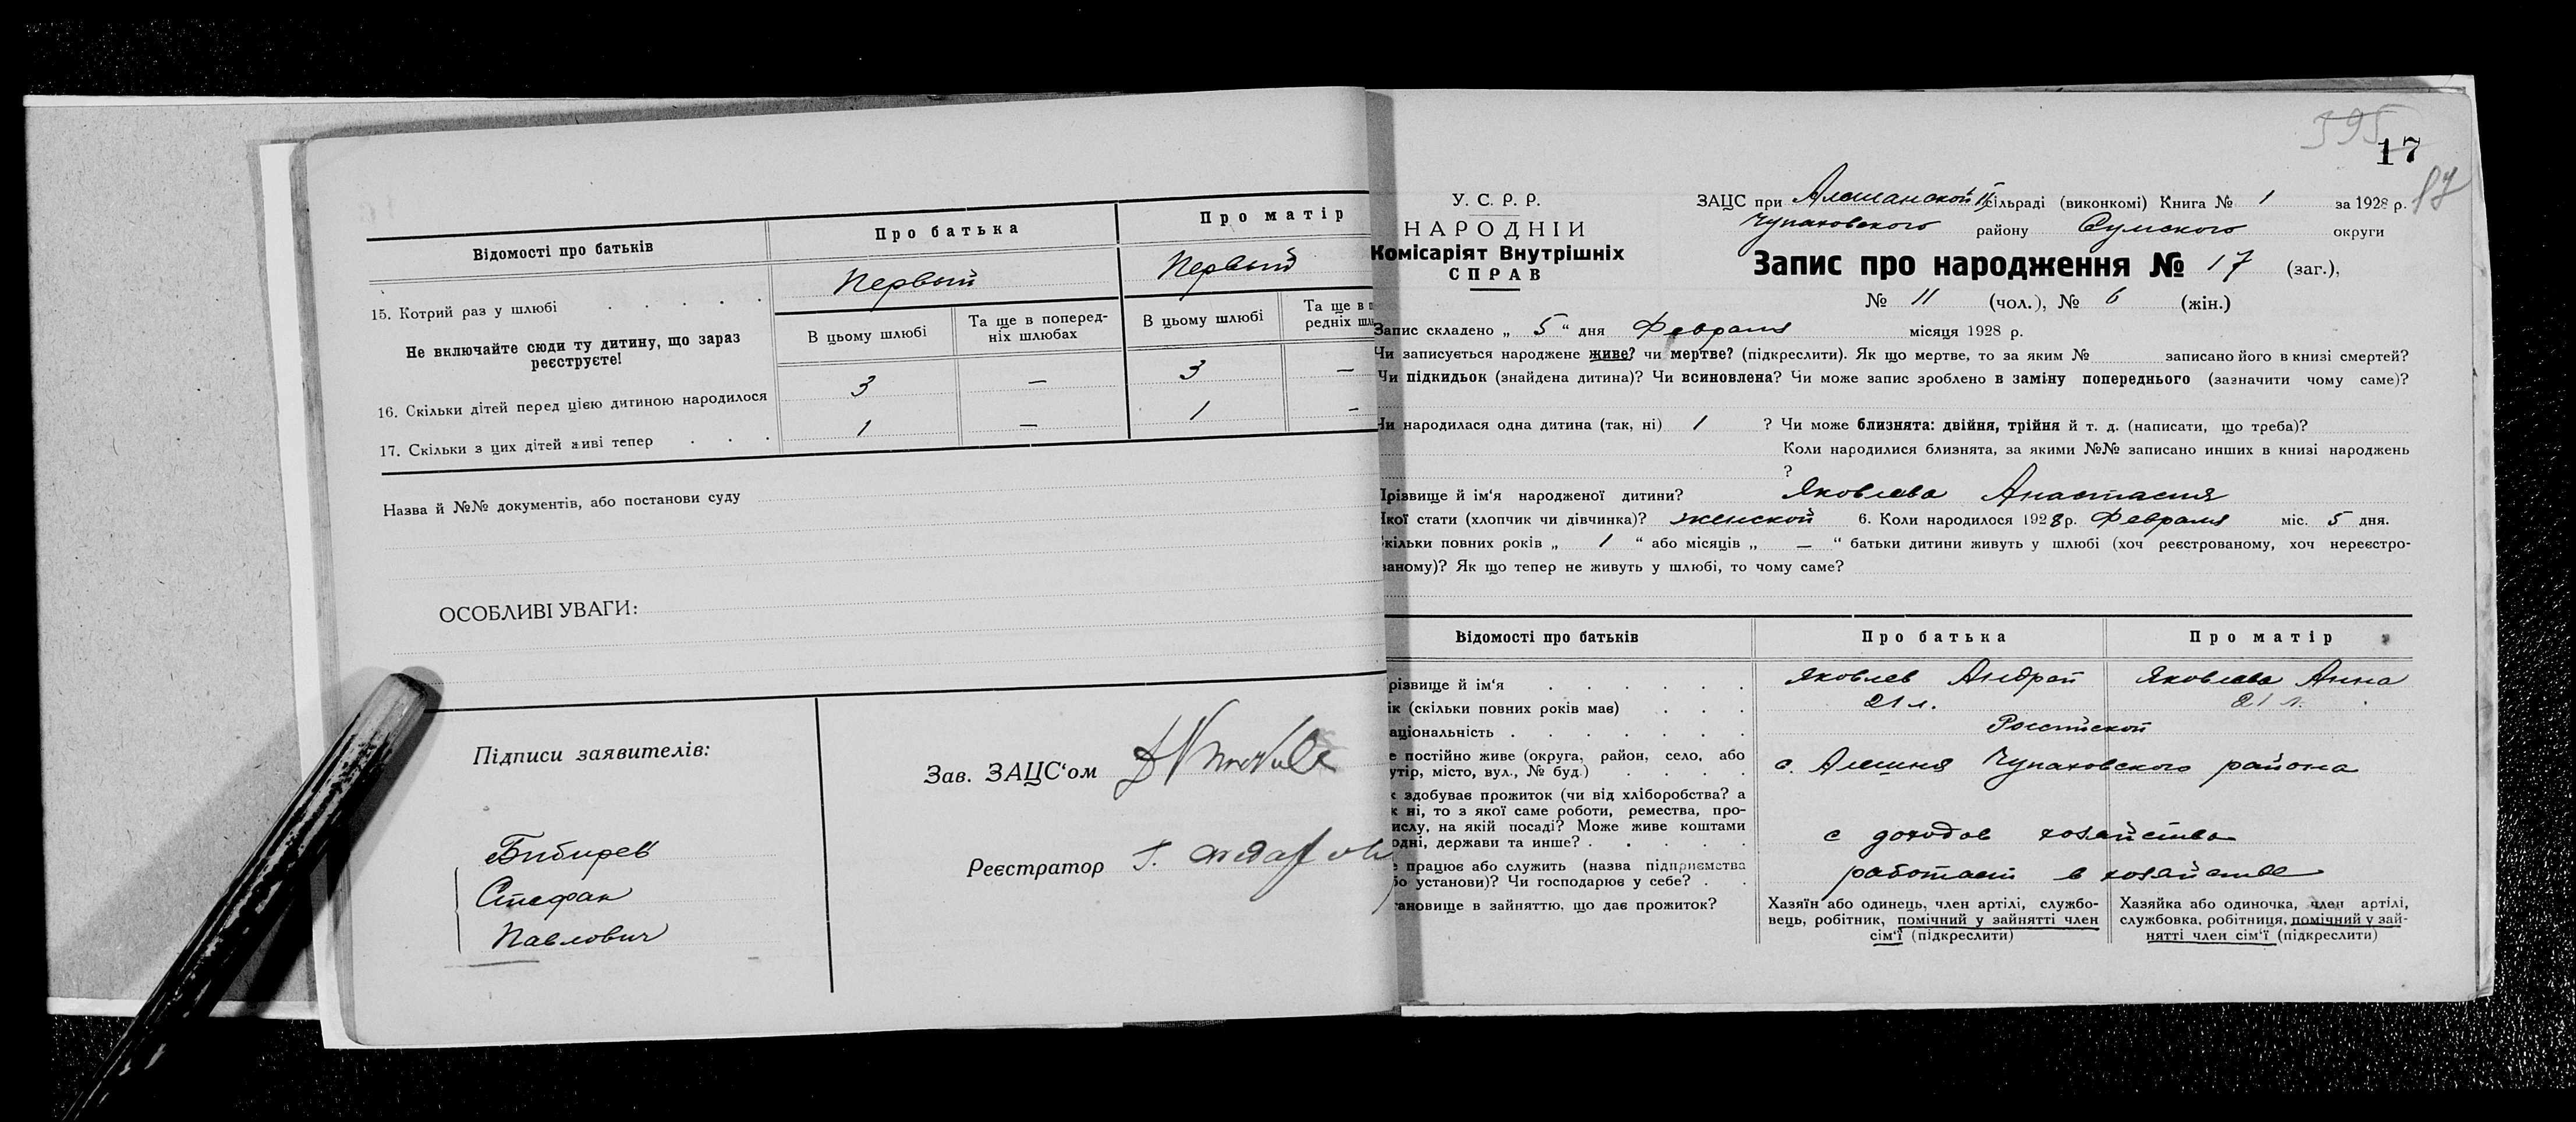 Відомості про батьків
Про батька
Про матір
15. Котрий раз у шлюбі . . . . .
Первый
Первый
Не включайте сюди ту дитину, що зараз реєструєте!
В цьому шлюбі
Та ще в поперед-
ніх шлюбах
В цьому шлюбі
Та ще в п
редніх шл
16. Скільки дітей перед цією дитиною народилося
3 — 3 —
17. Скільки з цих дітей живі тепер . . .
1 — 1 —
Назва й №№ документів, або постанови суду
ОСОБЛИВІ УВАГИ:
Підписи заявителів:
Бибирев
Стефан
Павлович
Зав. ЗАЦС‘ом
Реєстратор
395
17
У. С. Р. Р.
НАРОДНІЙ
Комісаріят Внутрішніх
СПРАВ
ЗАЦС при Алешанской сільраді (виконкомі) Книга № 1 за 1928 р.
Чупаховского району Сумского округи
Запис про народження № 17 (заг.),
№ 11 (чол.), № 6 (жін.)
Запис складено „ 5 “ дня Февраля місяця 1928 р.
Чи записується народжене живе? чи мертве? (підкреслити). Як що мертве, то за яким № записано його в книзі смертей?
Чи підкидьок (знайдена дитина)? Чи всиновлена? Чи може запис зроблено в заміну попереднього (зазначити чому саме)?
Чи народилася одна дитина (так, ні) 1 ? Чи може близнята: двійня, трійня й т. д. (написати, що треба)?
Коли народилися близнята, за якими №№ записано инших в книзі народжень
?
Прізвище й ім‘я народженої дитини? Яковлева Анастасия
Якої стати (хлопчик чи дівчинка)? женской 6. Коли народилося 1928 р. Февраля міс. 5 дня.
кільки повних років „ 1 “ або місяців „ — “ батьки дитини живуть у шлюбі (хоч реєстрованому, хоч нереєстро-
ваному)? Як що тепер не живуть у шлюбі, то чому саме?
Відомості про батьків
Про батька
Про матір
різвище й ім‘я . . . . . .
Яковлев Андрей
Яковлева Анна
ік (скільки повних років має) . . .
21 л.
21 л.
аціональність . . . . . . .
е постійно живе (округа, район, село, або
утір, місто, вул., № буд.) . . . .
с. Алешня Чупаховского района
к здобуває прожиток (чи від хліборобства? а
к ні, то з якої саме роботи, ремества, про-
ислу, на якій посаді? Може живе коштами
одні, держави та инше? . . . . .
с доходов хозяйства
е працює або служить (назва підприємства
бо установи)? Чи господарює у себе? . .
работает в хозяйстве
тановище в зайняттю, що дає прожиток?
Хазяїн або одинець, член артілі, службо-
вець, робітник, помічний у зайнятті член
сім‘ї (підкреслити)
Хазяйка або одиночка, член артілі,
службовка, робітниця, помічний у зай-
нятті член сім‘ї (підкреслити)